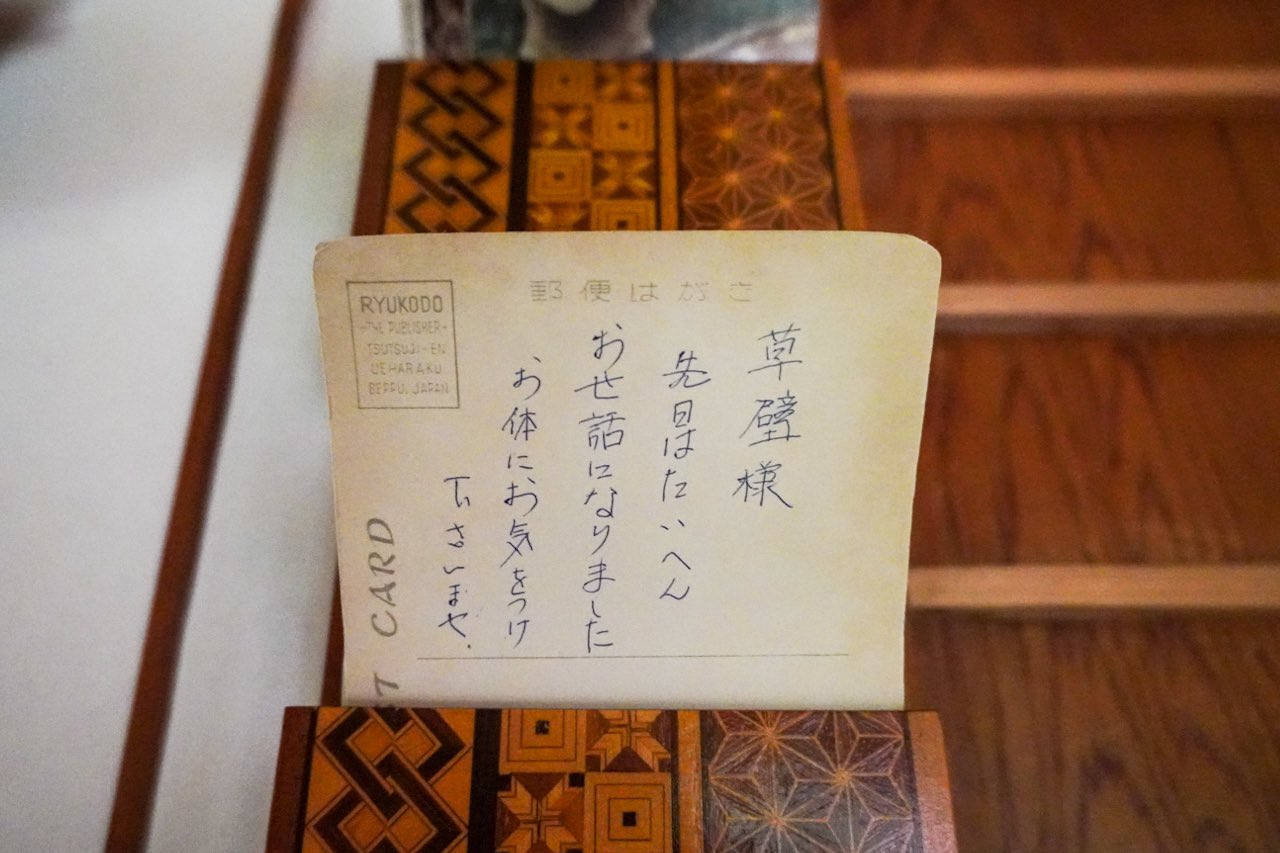 郵便はがき
RYUKODO
-THE PUBLISHER-
TSUTSUJI-EN
UEHARAKU
BEPPU, JAPAN
CARD
草壁様
先日はたいへん
お世話になりました
お体にお気をつけ
下さいませ.